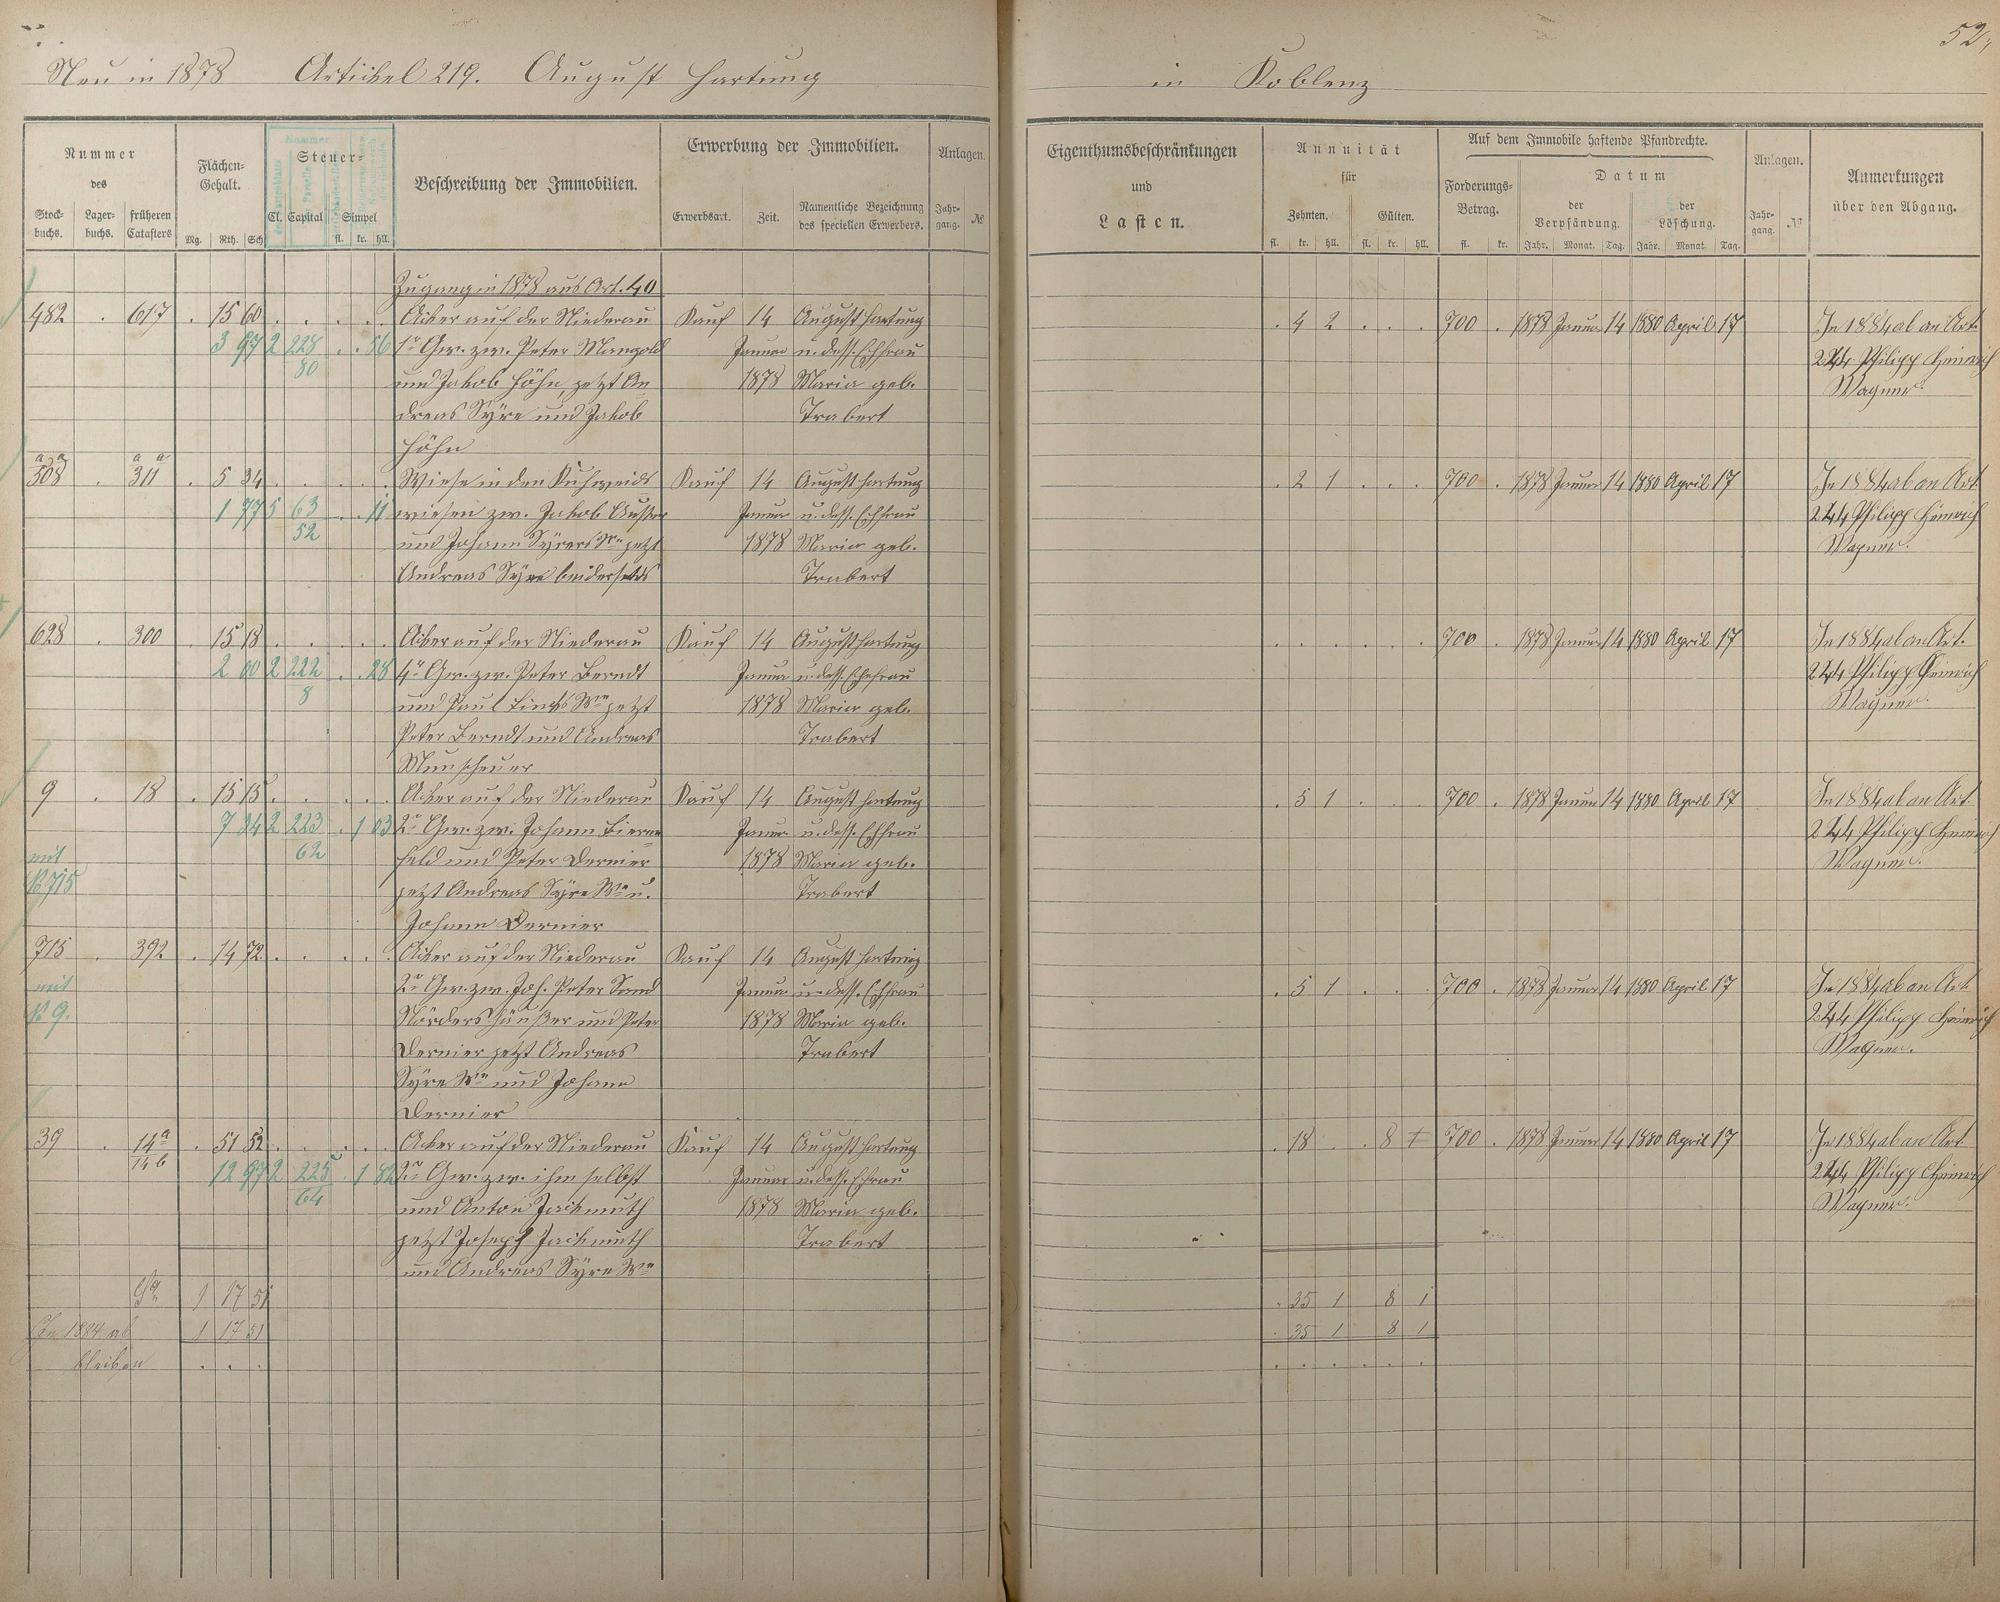 52,
Neu in 1878 Artikel 219. August Hartung in Koblenz
Nummer des
Stock-buchs. Lager-buchs. früheren Catasters
Flächen-Gehalt.
Mg. Rth. Sch
Nummer
Steuer-
Cl. Capital Simpel
fl. kr. hll.
Beschreibung der Immobilien.
Erwerbung der Immobilien.
Erwerbsart. Zeit. Namentliche Bezeichnung des speciellen Erwerbers.
Anlagen.
Jahr-gang. №
Eigenthumsbeschränkungen
und
Lasten.
Annuität
für
Zehnten. Gülten.
fl. kr. hll. fl. kr. hll.
Auf dem Immobile haftende Pfandrechte.
Forderungs-Betrag.
fl. kr.
Datum
der Verpfändung. der Löschung.
Jahr. Monat. Tag. Jahr. Monat. Tag.
Anlagen.
Jahr-gang. №
Anmerkungen
über den Abgang.
Zugang in 1878 aus Art. 40
482 . 617 . 15 60 . . . . . Acker auf der Niederau Kauf 14 August Hartung . 4 2 . . . 700 . 1878 Januar 14 1880 April 17 In 1884 ab an Art.
3 97 2 228 . . 56 1r Gew. zw. Peter Mangold Januar u. dess. Ehfrau 244 Philipp Heinrich
80 und Jakob Höhn, jetzt An- 1878 Maria geb. Wagner.
dreas Syre und Jakob Trabert
Höhn
a a a a
508 . 311 . 5 34 . . . . . Wiese in den Kuhweids- Kauf 14 August Hartung . 2 1 . . . 700 . 1878 Januar 14 1880 April 17 In 1884 ab an Art.
1 77 5 63 . . 11 wiesen zw. Jakob Januar u. dess. Ehfrau 244 Philipp Heinrich
52 und Johann Wwe jetzt 1878 Maria geb. Wagner.
Andreas Syre beiderseits Trabert
628 . 300 . 15 18 . . . . . Acker auf der Niederau Kauf 14 August Hartung . . . . . . 700 . 1878 Januar 14 1880 April 17 In 1884 ab an Art.
2 00 2 222 . . 28 4r Gew. zw. Peter Berndt Januar u. dess. Ehefrau 244 Philipp Heinrich
8 und Paul Wwe jetzt 1878 Maria geb. Wagner.
Peter Berndt und Andreas Trabert
Munscheuer
9 . 18 . 15 15 . . . . . Acker auf der Niederau Kauf 14 August Hartung . 5 1 . . . 700 . 1878 Januar 14 1880 April 17 In 1884 ab an Art.
7 34 2 223 . 1 03 2r Gew. zw. Johann Bieren- Januar u. dess. Ehfrau 244 Philipp Heinrich
mit 62 feld und Peter Dernier 1878 Maria geb. Wagner.
№ 715 jetzt Andreas Syre Wwe u. Trabert
Johann Dernier
715 . 392 . 14 72 . . . . . Acker auf der Niederau Kauf 14 August Hartung
mit 2r Gew. zw. Joh. Peter Januar u. dess. Ehfrau . 5 1 . . . 700 . 1878 Januar 14 1880 April 17 In 1884 ab an Art.
№ 9. und Peter 1878 Maria geb. 244 Philipp Heinrich
Dernier jetzt Andreas Trabert Wagner.
Syre Wwe und Johann
Dernier
39 . 14a . 51 52 . . . . . Acker auf der Niederau Kauf 14 August Hartung . 18 . . 8 1 700 . 1878 Januar 14 1880 April 17 In 1884 ab an Art.
14b 12 97 2 225 . 1 82 2r Gew. zw. ihm selbst Januar u. dess. Ehfrau 244 Philipp Heinrich
64 und Anton Jackmuth 1878 Maria geb. Wagner.
jetzt Joseph Jackmuth Trabert
und Andreas Syre Wwe
Sa. 1 17 51 . 35 1 8 1
In 1884 ab 1 17 51 . 35 1 8 1
bleiben . . . . . . . . .